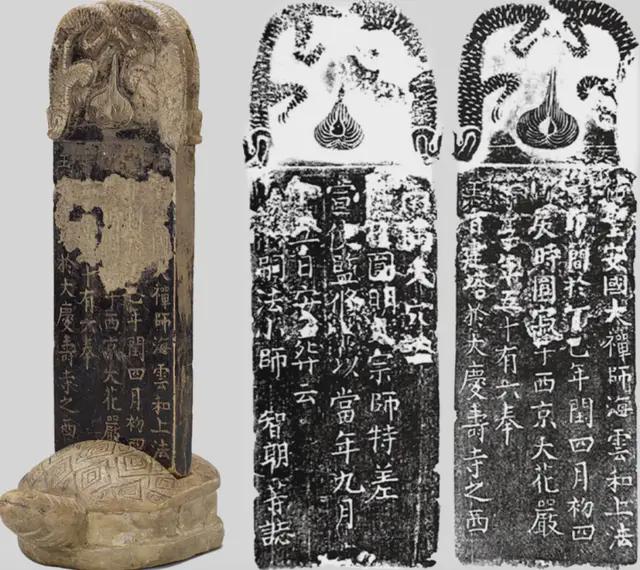 安國大禪師海雲和上法
印簡於丁巳年閏四月初四
辰時圓寂于西京大花嚴
年五十有六奉
旨建塔於大慶壽寺之西
圓明大宗師特差
宣使監修以當年九月
日安葬云
法小師 智朗等誌
大禪師海雲和上法
巳年閏四月初四
西京大花嚴
十有六奉
於大慶壽寺之西